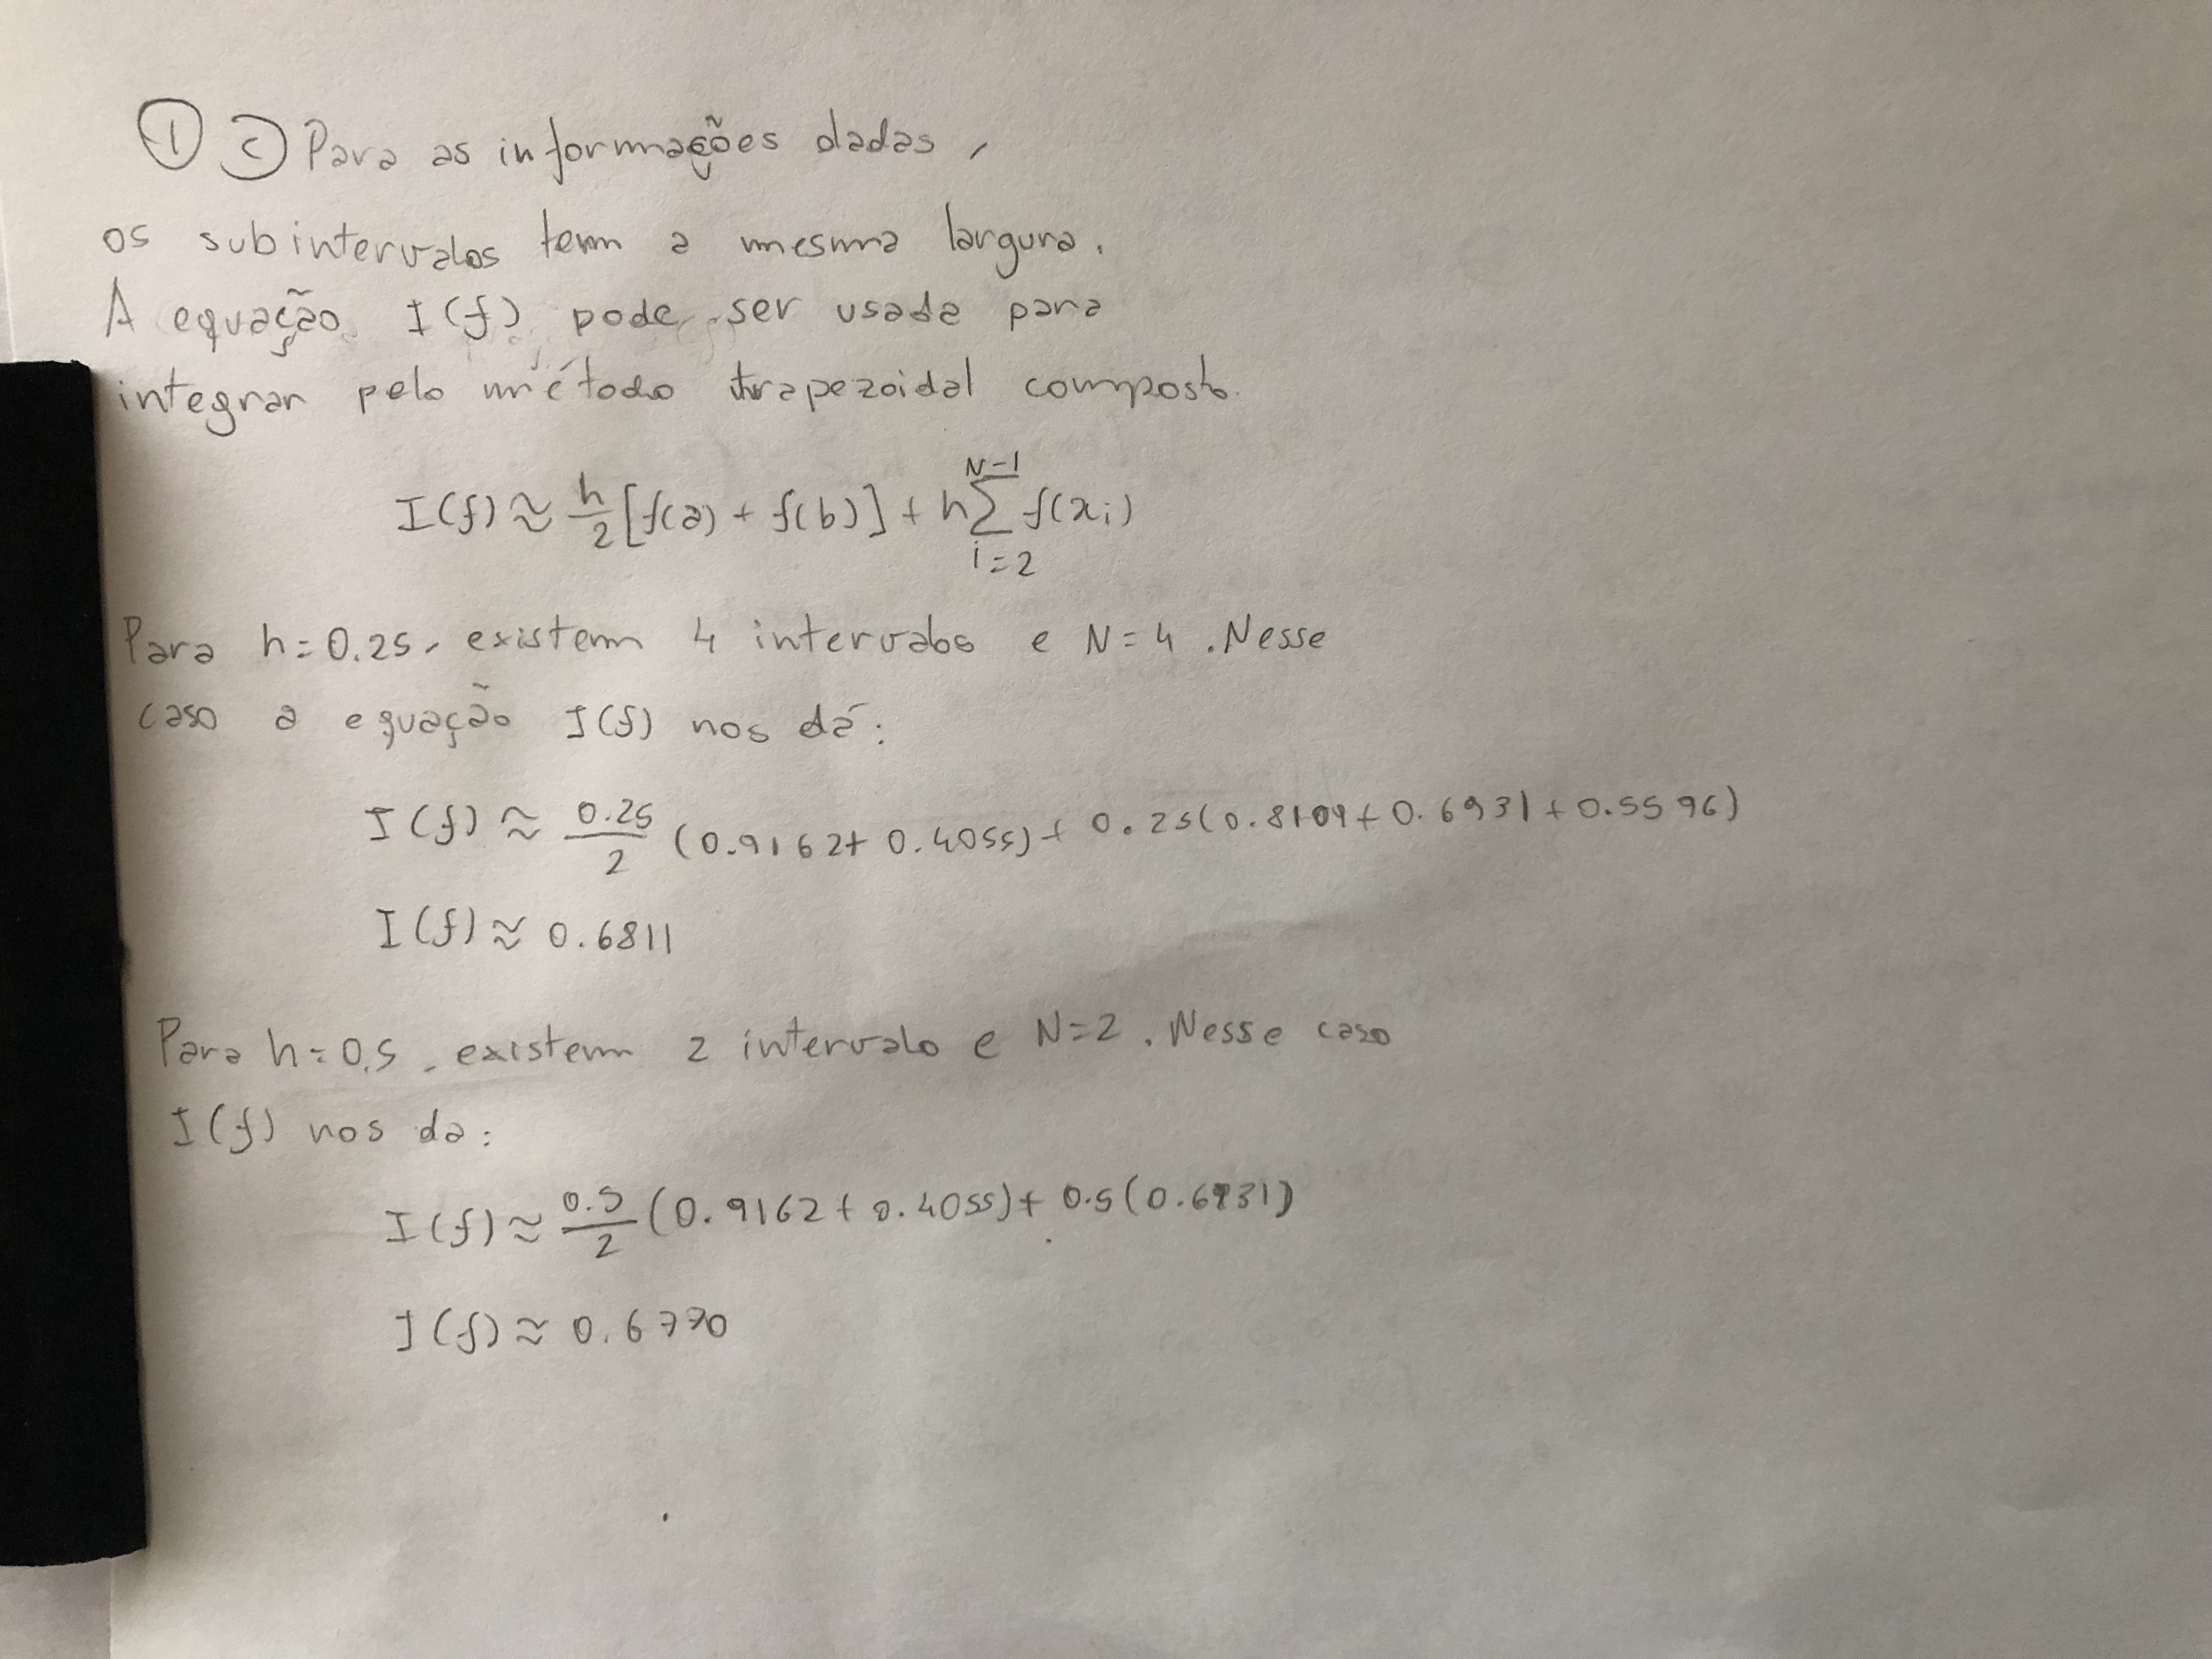 ① c) Para as informações dadas,
os subintervalos tem a mesma largura.
A equação I(f) pode ser usada para
integrar pelo método trapezoidal composto.
I(f) ≈ h/2 [f(a) + f(b)] + h ∑_{i=2}^{N-1} f(xi)
Para h=0.25, existem 4 intervalos e N=4. Nesse
caso a equação I(f) nos dá:
I(f) ≈ 0.25/2 (0.9162 + 0.4055) + 0.25(0.8109 + 0.6931 + 0.5596)
I(f) ≈ 0.6811
Para h=0.5, existem 2 intervalo e N=2. Nesse caso
I(f) nos da:
I(f) ≈ 0.5/2 (0.9162 + 0.4055) + 0.5(0.6931)
I(f) ≈ 0.6770